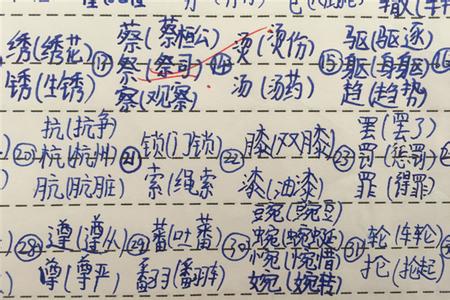 绣(绣花) ⑰ 蔡(蔡桓公) 烫(烫伤) 驱(驱逐)
祭(祭司) ⑮ 躯(身躯)
锈(生锈) 察(观察) 汤(汤药) 趋(趋势)
抗(抗争) 锁(门锁) 膝(双膝) 罢(罢了)
⑳ 杭(杭州) ㉑ ㉒ ㉓ 罚(惩罚)
肮(肮脏) 索(绳索) 漆(油漆) 罪(得罪)
豌(豌豆)
㉘ 遵(遵从) ㉙ 蕃(吐蕃) ㉚ 蜿(蜿蜒) ㉛ 轮(车轮)
惋(惋惜)
尊(尊严) 翻(翻车) 婉(婉转) 抡(抡起)